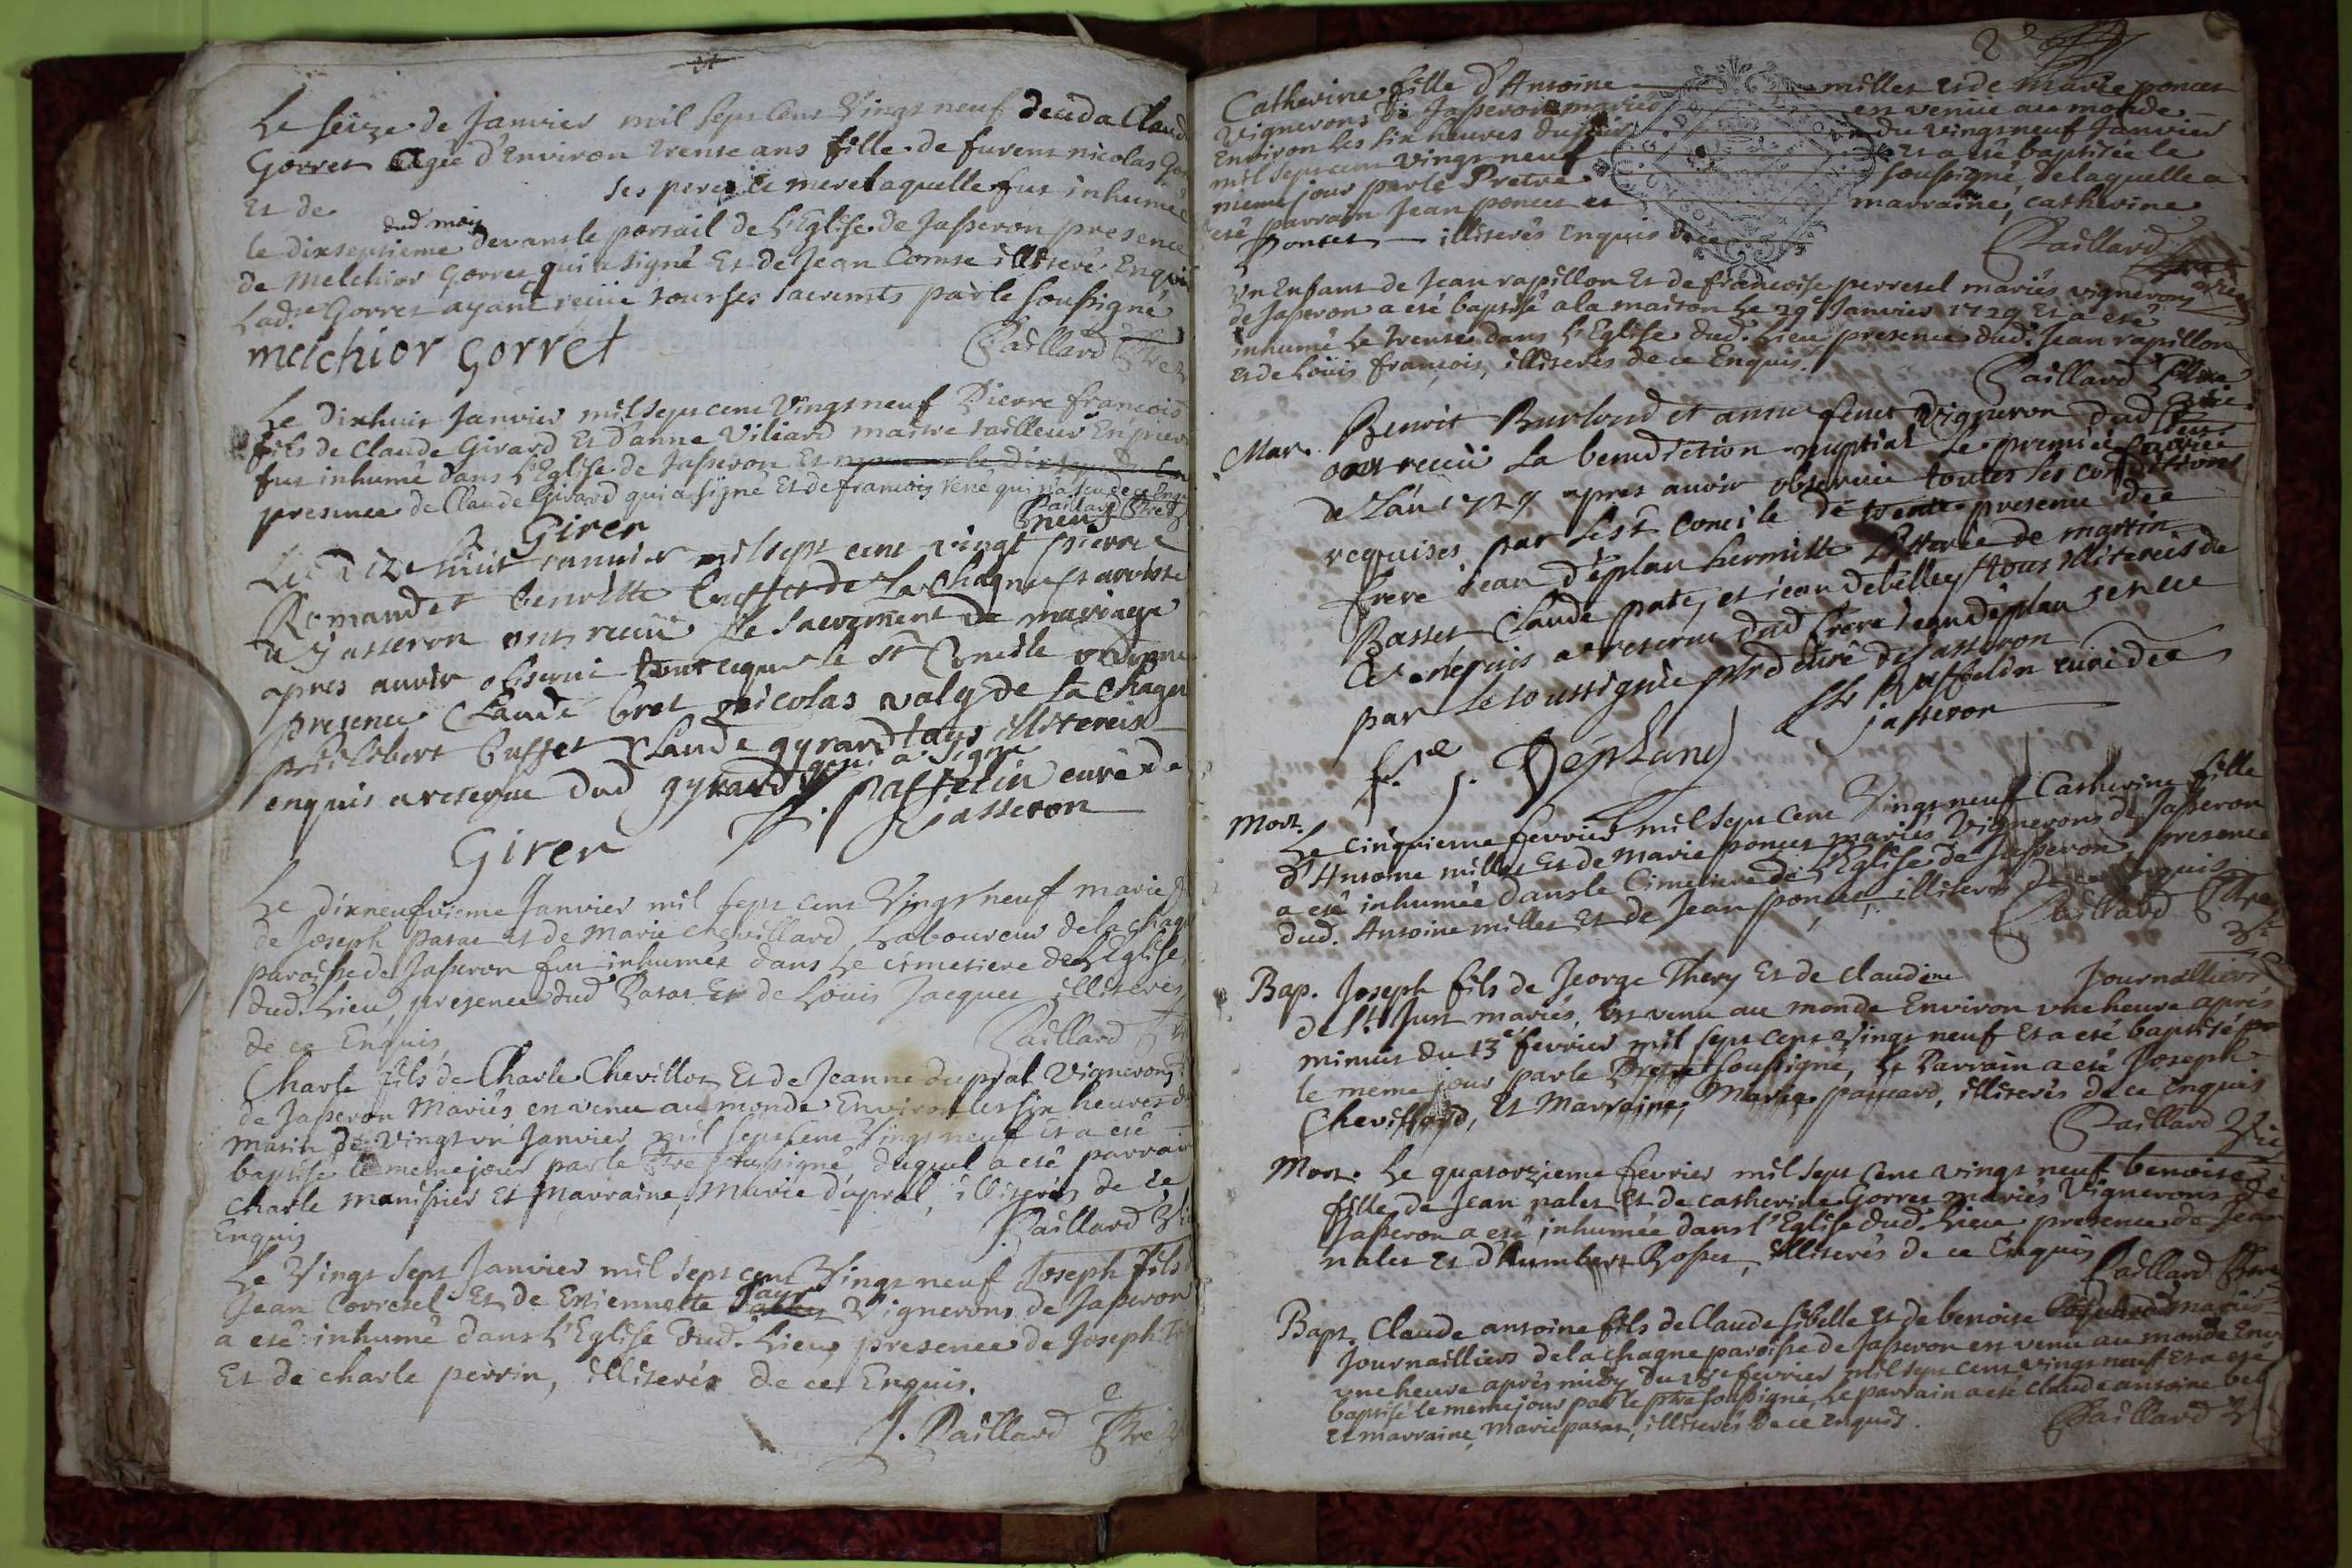 Le seize de Janvier mil sept cent Vingt neuf deceda Claud
Gorret agée d'Environ trente ans fille de furent nicolas Gor
et de ses pere et mere laquelle fut inhumée
le dixseptieme dud mois devant le portail de L'Eglise de Jasseron presence
de Melchior Gorret qui a signé Et de Jean Comte illiteré Enquis
Lad.te Gorret ayant reçüe tous ses sacremts par le soussigné
melchior gorret
Paillard Ptre
Le Dixhuit Janvier mil sept cent Vingt neuf Pierre francois
fils de Claude Girard Et d'anne Viliard maitre tailleur
fut inhumé dans L'Eglise de Jasseron Et
presence de Claude Girard qui a signé Et de francois
Paillard Ptre
Girer
Le dize huit ianvier mil sept cent vingt neuf pierre
Romand et benoitte buffet de La Chagne paroisse
de Jasseron ont receu Le Sacrement de mariage
apres auoir obserué tout ce que le St Concile ordonne
presence Claude bret nicolas valy de La Chagne
philibert buffet Claude gyrard tous illitereis
enquis a reserue dud gyrard qui a signe
paffelin curé de
Jasseron
Girer
Le dixneufvieme Janvier mil sept cent Vingt neuf marie
de Joseph parat et de Marie chevillard Laboureur de la chag
paroisse de Jasseron fut inhumée dans Le cimetiere de L'Eglise
dud. Lieu, presence dud Parat Et de Loüis Jacquet illiterés
de ce Enquis
Paillard Ptre
Charle fils de Charle Chevillot Et de Jeanne duprat Vignerons
de Jasseron Mariés est venu au monde Environ les six heures du
Matin de Vingt un Janvier mil sept cent Vingt neuf et a eté
baptisé le meme jour par le Ptre soussigné, duquel a eté parrain
Charle manissier et Marraine, Marie duprat, illiterés de ce
Enquis
Paillard Vic
Le Vingt sept Janvier mil sept cent Vingt neuf Joseph fils
Jean Corretel Et de Estiennette Vignerons de Jasseron
a eté inhumé dans L'Eglise dud. Lieu, presence de Joseph
Et de charle perrin, illiterés de ce Enquis.
J. Paillard Ptre
2e
Catherine fille d'Antoine millet et de Marie poncet
Vignerons de Jasseron mariés est venue au monde
Environ les six heures du soir du Vingt neuf Janvier
mil sept cent Vingt neuf Et a eté baptisée le
meme jour par le Pretre soussigné, de laquelle a
eté parrain Jean poncet et marraine, catherine
Poncet illiterés Enquis de ce
Paillard Ptre Vic
Un Enfant de Jean rapillon Et de francoise perretel mariés vignerons
de Jasseron a eté baptisé a la maison Le 29e Janvier 1729 Et a eté
inhumé Le trente dans L'Eglise dud. Lieu presence dud. Jean rapillon
et de Loüis francois, illiterés de ce Enquis.
Paillard Ptre
Mar. Benoit Burlond et anne feuet vigneron dud lieu
ont receu La benediction nuptial Le premié feurié
de L'an 1729 apres auoir obserué toutes les conditions
requises par Le St Concile de trente presence de
frere iean d'éplan hermitte
Basset Claude pate, et iean debelley tous illitereis de
ce enquis a reserue dud frere ieandéplan
par Le soussigné curé de Jasseron
Paffelin curé de
jasseron
f. J. Dépland
Mort. Le Cinquieme fevrier mil sept cent Vingt neuf Catherine fille
d'Antoine millet Et de Marie poncet mariés Vignerons de Jasseron
a eté inhumée dans le Cimetiere de L'Eglise de Jasseron, presence
dud. Antoine millet Et de Jean poncet, illiterés de ce Enquis
Paillard Ptre
Bap. Joseph fils de Jeorge Thery Et de claudine Journalliers
de St. Just mariés, Est venu au monde Environ une heure aprés
minuit du 13e fevrier mil sept cent Vingt neuf Et a eté baptisé
le meme jour par le Pretre soussigné, Le Parrain a eté Joseph
Chevillard, Et Marraine, Marie paccard, illiterés de ce Enquis
Paillard Vic
Mort. Le quatorzieme fevrier mil sept cent vingt neuf benoite
fille de Jean nalet Et de catherine Gorret mariés Vignerons de
Jasseron a eté inhumée dans l'Eglise dud. Lieu presence de Jean
nalet Et d'humbert Bosset, illiterés de ce Enquis
Paillard Ptre
Bapt. Claude antoine fils de Claude sibelle Et de benoite mariés
Journailliers de la chagne paroisse de Jasseron est venu au monde Env
une heure aprés midy du fevrier mil sept cent vingt neuf Et a eté
baptisé le meme jour par le ptre soussigné, Le parrain a eté Claude antoine
Et marraine, Marie parat, illiterés de ce Enquis.
Paillard V